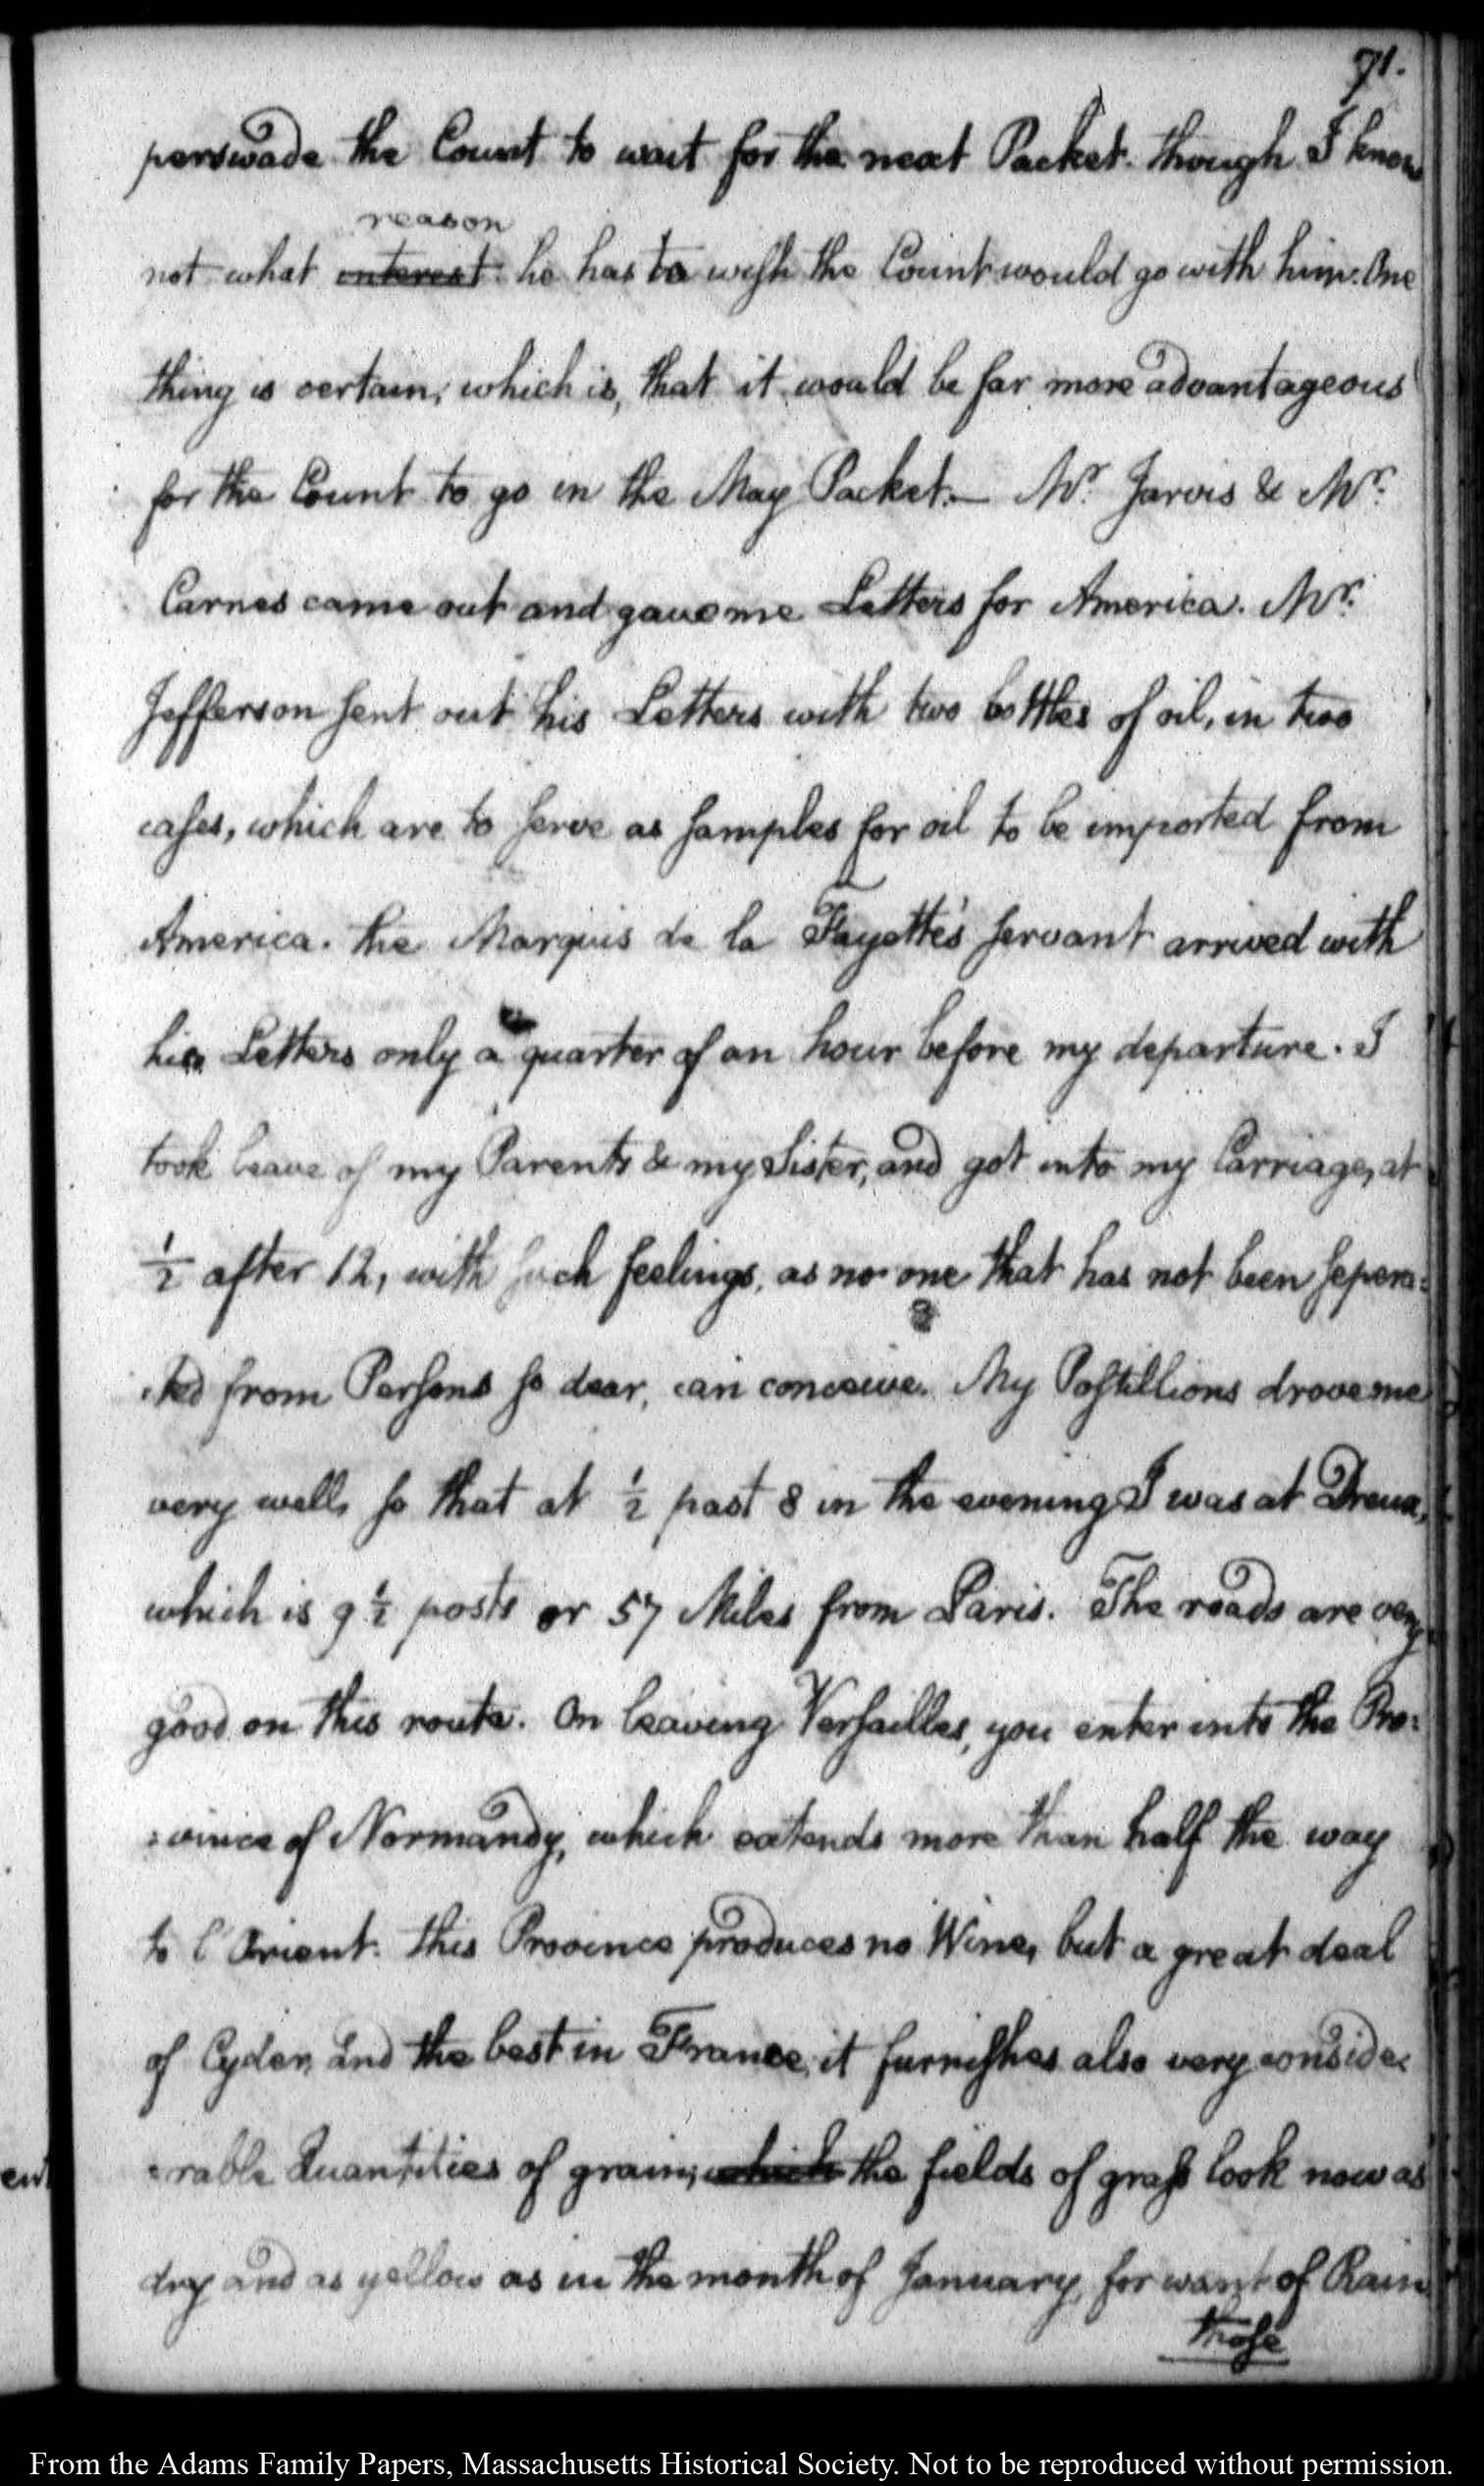 71.
perswade the Count to wait for the next Packet. though I know
reason
not what interest he has to wish the Count would go with him. One
thing is certain, which is, that it would be far more advantageous
for the Count to go in the May Packet.— Mr. Jarvis & Mr.
Carnes came out and gave me Letters for America. Mr.
Jefferson sent out his Letters with two bottles of oil, in two
cases, which are to serve as samples for oil to be imported from
America. the Marquis de la Fayette's servant arrived with
his Letters only a quarter of an hour before my departure. I
took leave of my Parents & my Sister, and got into my Carriage, at
½ after 12, with such feelings, as no one that has not been sepera:
:ted from Persons so dear, can conceive. My Postillions drove me
very well, so that at ½ past 8 in the evening I was at Dreux,
which is 9 ½ posts or 57 Miles from Paris. The roads are very
good on this route. On leaving Versailles, you enter into the Pro:
:vince of Normandy, which extends more than half the way
to l'Orient. this Province produces no Wine, but a great deal
of Cyder, and the best in France, it furnishes also very conside:
:rable Quantities of grain; which the fields of grass look now as
dry and as yellow as in the month of January, for want of Rain
those
From the Adams Family Papers, Massachusetts Historical Society. Not to be reproduced without permission.